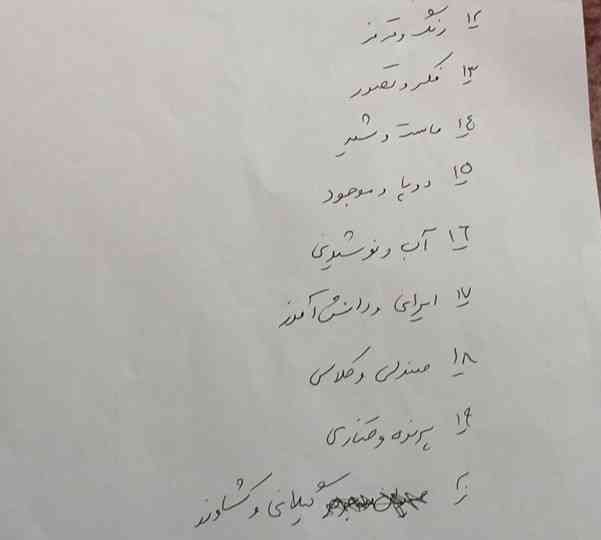 ۱۲ رنگ و قرمز
۱۳ فکر و تصور
۱٤ ماست و شیر
۱۵ دوپا و موجود
۱٦ آب و نوشیدنی
۱۷ ایرانی و دانش آموز
۱۸ صندلی و کلاس
۱۹ پرنده و قناری
۲۰ گیلانی و کشاورز